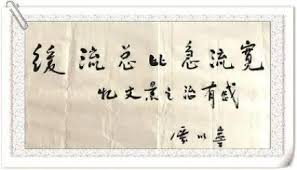 缓流总比急流宽
忆文景之治有感